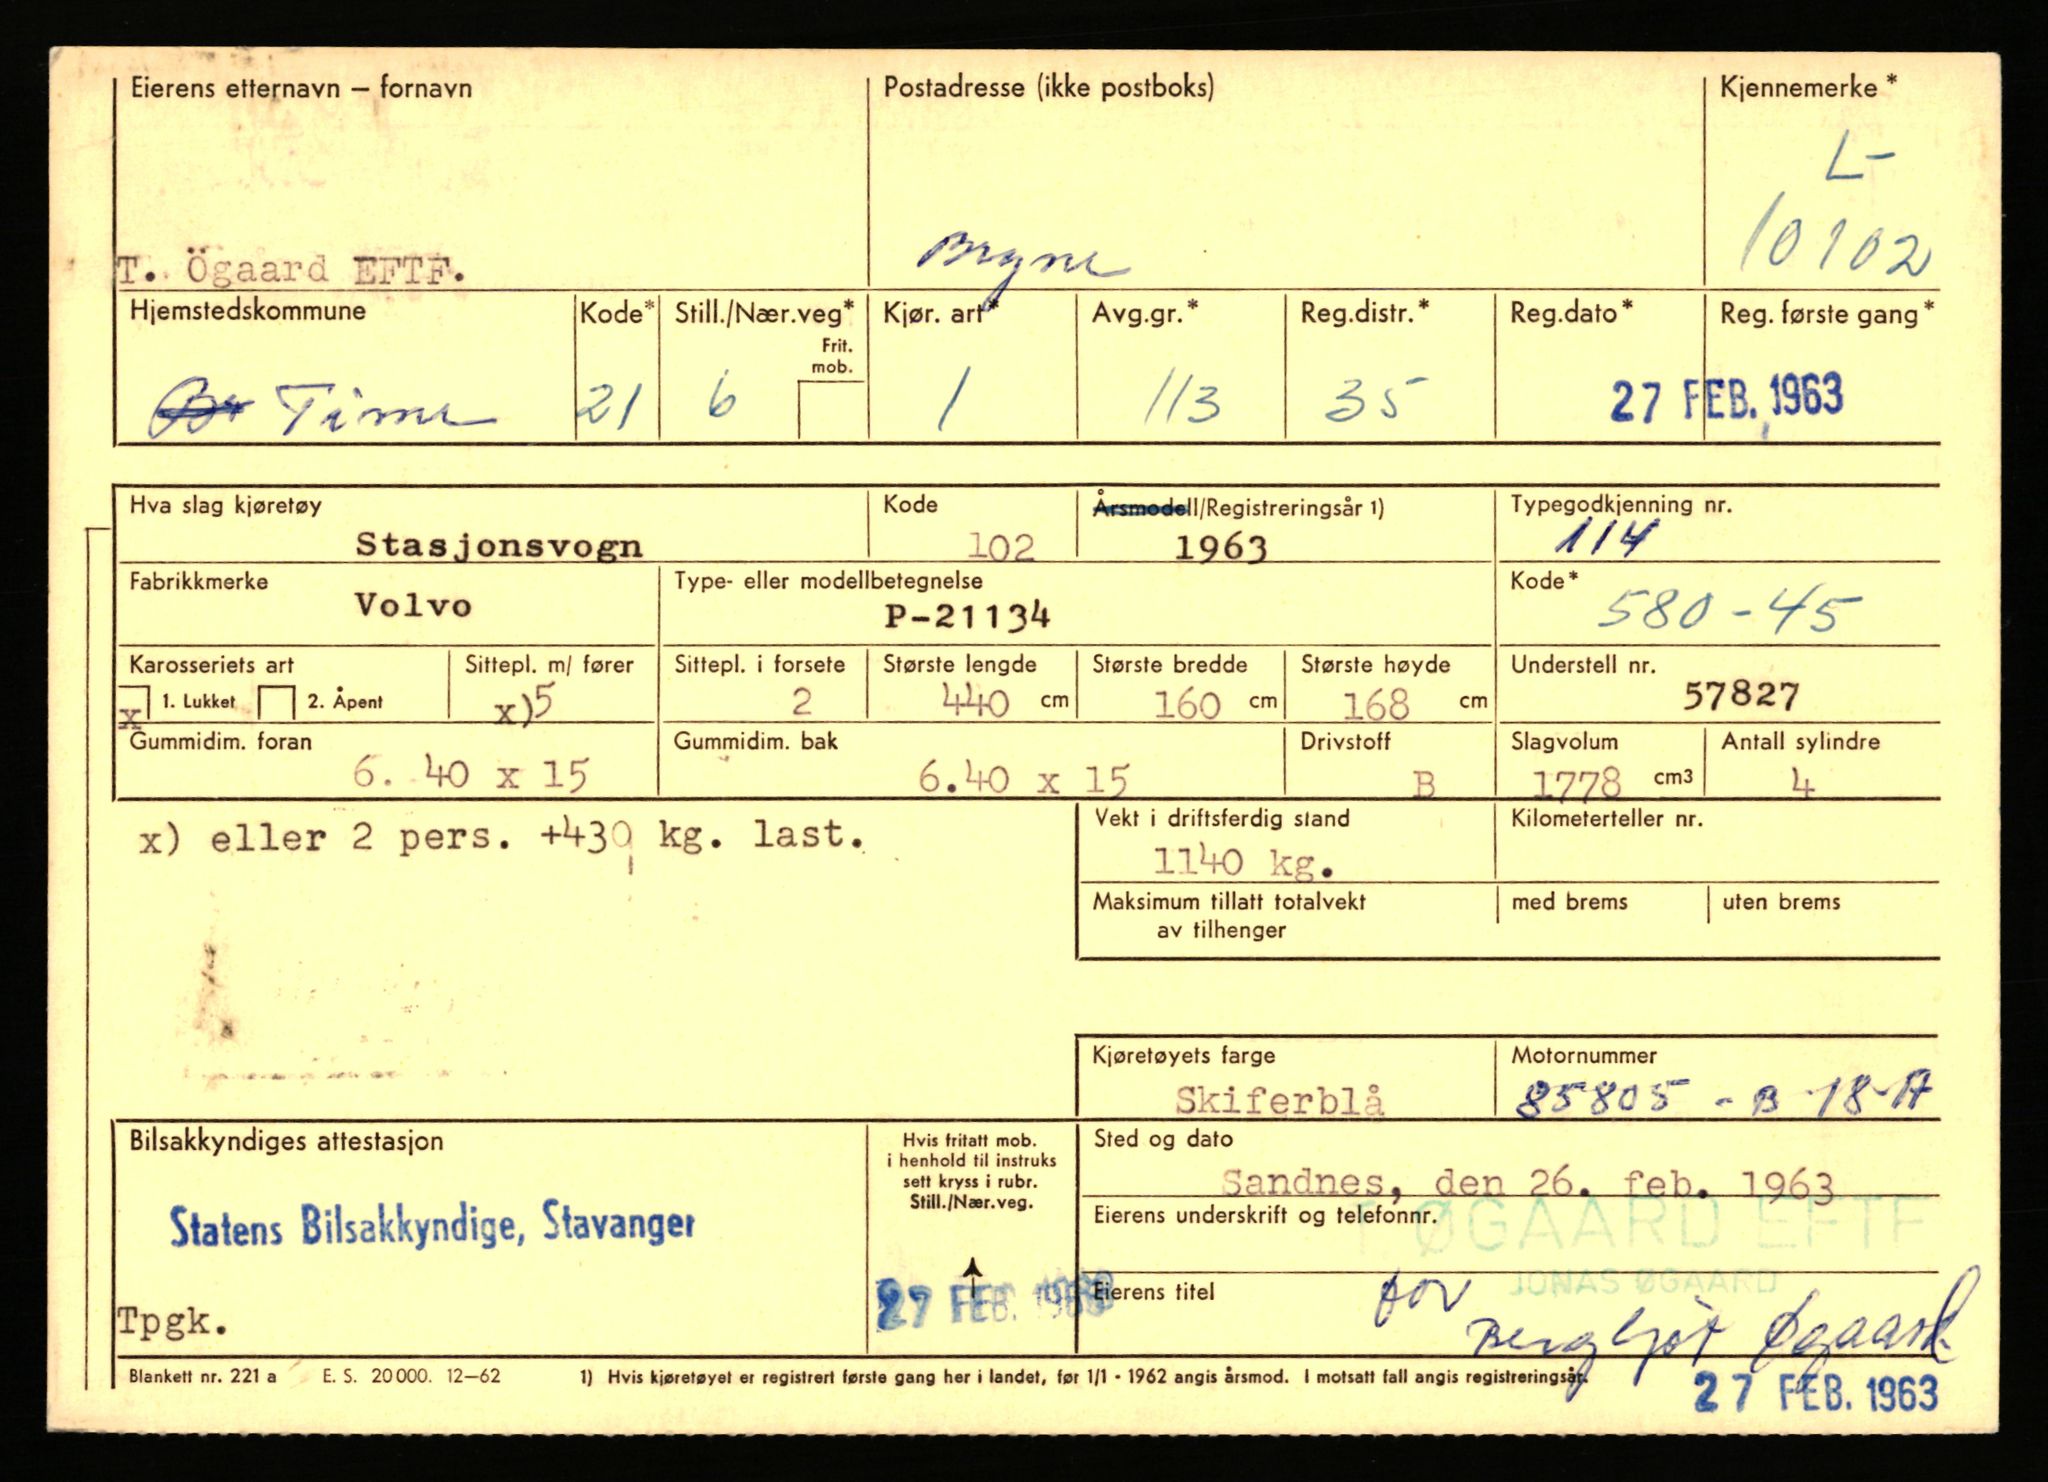 Eierens etternavn – fornavn
Postadresse (ikke postboks)
Kjennemerke*
L-
10102
T. Ögaard EFTF.
Bryne
Hjemstedskommune
Kode*
Still./Nær.veg*
Frit. mob.
Kjør. art*
Avg.gr.*
Reg.distr.*
Reg.dato*
Reg. første gang*
Br Time
21
6
1
113
35
27 FEB. 1963
Hva slag kjøretøy
Kode
Årsmodell/Registreringsår 1)
Typegodkjenning nr.
Stasjonsvogn
102
1963
114
Fabrikkmerke
Type- eller modellbetegnelse
Kode*
Volvo
P-21134
580-45
Karosseriets art
Sittepl. m/ fører
Sittepl. i forsete
Største lengde
Største bredde
Største høyde
Understell nr.
x 1. Lukket 2. Åpent
x)5
2
440 cm
160 cm
168 cm
57827
Gummidim. foran
Gummidim. bak
Drivstoff
Slagvolum
Antall sylindre
6. 40 x 15
6.40 x 15
B
1778 cm3
4
x) eller 2 pers. +430 kg. last.
Vekt i driftsferdig stand
Kilometerteller nr.
1140 kg.
Maksimum tillatt totalvekt
av tilhenger
med brems
uten brems
Kjøretøyets farge
Motornummer
Skiferblå
85805 - B-18-A
Bilsakkyndiges attestasjon
Hvis fritatt mob.
i henhold til instruks
sett kryss i rubr.
Still./Nær.veg.
Sted og dato
Sandnes, den 26. feb. 1963
Statens Bilsakkyndige, Stavanger
Eierens underskrift og telefonnr.
ØGAARD EFTF
JONAS ØGAARD
27 FEB. 1963
Eierens titel
for
Bergljot Øgaard
Tpgk.
Blankett nr. 221 a E. S. 20 000. 12–62
1) Hvis kjøretøyet er registrert første gang her i landet, før 1/1 - 1962 angis årsmod. I motsatt fall angis registreringsår.
27 FEB. 1963